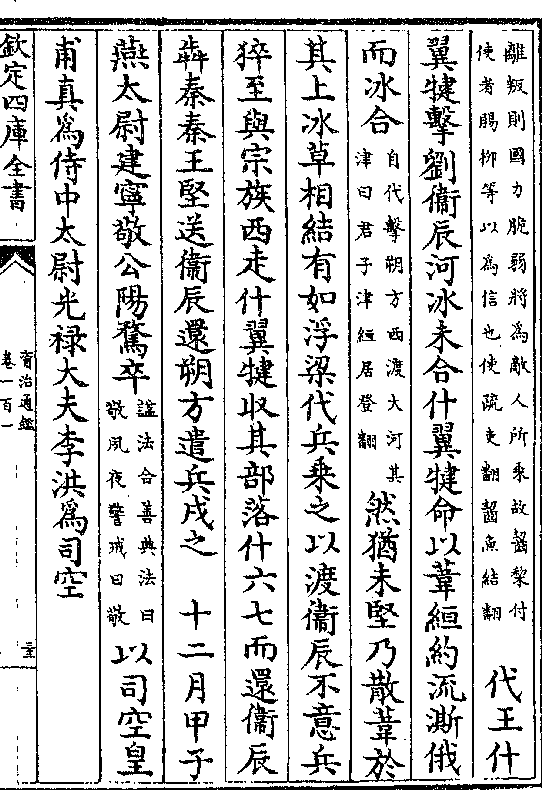 離叛則國力脆弱將為敵人所乗故齧棃付
使者賜柳等以為信也使疏吏翻齧魚結翻
代王什
翼犍擊劉衞辰河冰未合什翼犍命以葦絙約流澌俄
而冰合
自代擊朔方西渡大河其
津曰君子津絙居登翻
然猶未堅乃散葦於
其上冰草相結有如浮梁代兵乗之以渡衞辰不意兵
猝至與宗族西走什翼犍收其部落什六七而還衞辰
犇秦秦王堅送衞辰還朔方遣兵戍之　十二月甲子
燕太尉建寧敬公陽騖卒
諡法合善典法曰
敬夙夜警戒曰敬
以司空皇
甫真為侍中太尉光禄大夫李洪為司空
欽定四庫全書
資治通鑑
卷一百一